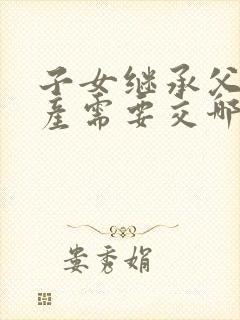 子女继承父
产需要交那
娄秀娟